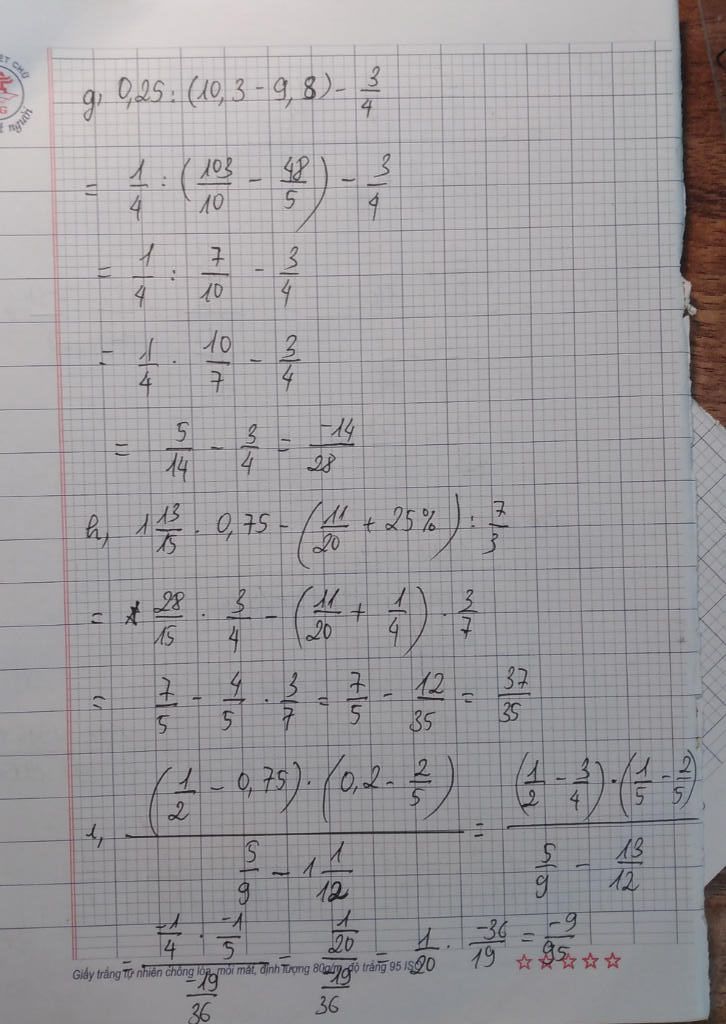 ẾT CHỮ
G
ết người
g, 0,25 : (10,3 - 9,8) - 3/4
= 1/4 : (103/10 - 48/5) - 3/4
= 1/4 : 7/10 - 3/4
= 1/4 . 10/7 - 3/4
= 5/14 - 3/4 = -14/28
h, 1 13/15 . 0,75 - (11/20 + 25%) : 7/3
= 28/15 . 3/4 - (11/20 + 1/4) . 3/7
= 7/5 - 4/5 . 3/7 = 7/5 - 12/35 = 37/35
i, ((1/2 - 0,75) . (0,2 - 2/5)) / (5/9 - 1 1/12) = ((1/2 - 3/4) . (1/5 - 2/5)) / (5/9 - 13/12)
= (-1/4 . -1/5) / (-19/36) = (1/20) / (-19/36) = 1/20 . -36/19 = -9/95
Giấy trắng tự nhiên chống lóa, mỏi mắt, định lượng 80g/m, độ trắng 95 ISO